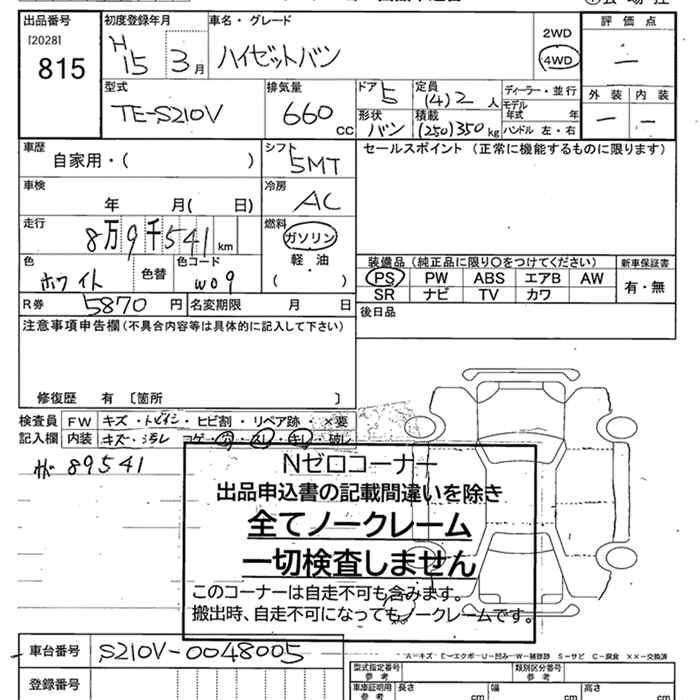 出品番号 初度登録年月 車名・グレード 評価点
[2028] 815
H15 3月 ハイゼットバン
2WD 4WD
－
型式 排気量 ドア 定員 ディーラー・並行 外装 内装
TE-S210V 660cc 5 (4)2人
モデル年式 年
－ －
形状 積載 ハンドル 左・右
バン (250)350kg
車歴 シフト セールスポイント (正常に機能するものに限ります)
自家用・( ) 5MT
車検 冷房
年 月( 日) AC
走行 燃料
8万9千541km ガソリン
軽・油
( )
色 色替 色コード
ホワイト W09
装備品 (純正品に限り〇をつけてください) 新車保証書
PS PW ABS エアB AW 有・無
SR ナビ TV カワ
R券 5870円 名変期限 月 日
後日品
注意事項申告欄 (不具合内容等は具体的に記入して下さい)
修復歴 有 [箇所 ]
検査員 FW キズ・トビイシ・ヒビ割・リペア跡・×要
記入欄 内装 キズ・汚レ コゲ・穴・
89541
Nゼロコーナー
出品申込書の記載間違いを除き
全てノークレーム
一切検査しません
このコーナーは自走不可も含みます。
搬出時、自走不可になってもノークレームです。
A－キズ E－エクボ U－凹み W－補修跡 S－サビ C－腐食 ××－交換済
車台番号 S210V-0048005
型式指定番号 参考 類別区分番号 参考
登録番号
車庫証明用 参考 長さ cm 幅 cm 高さ cm